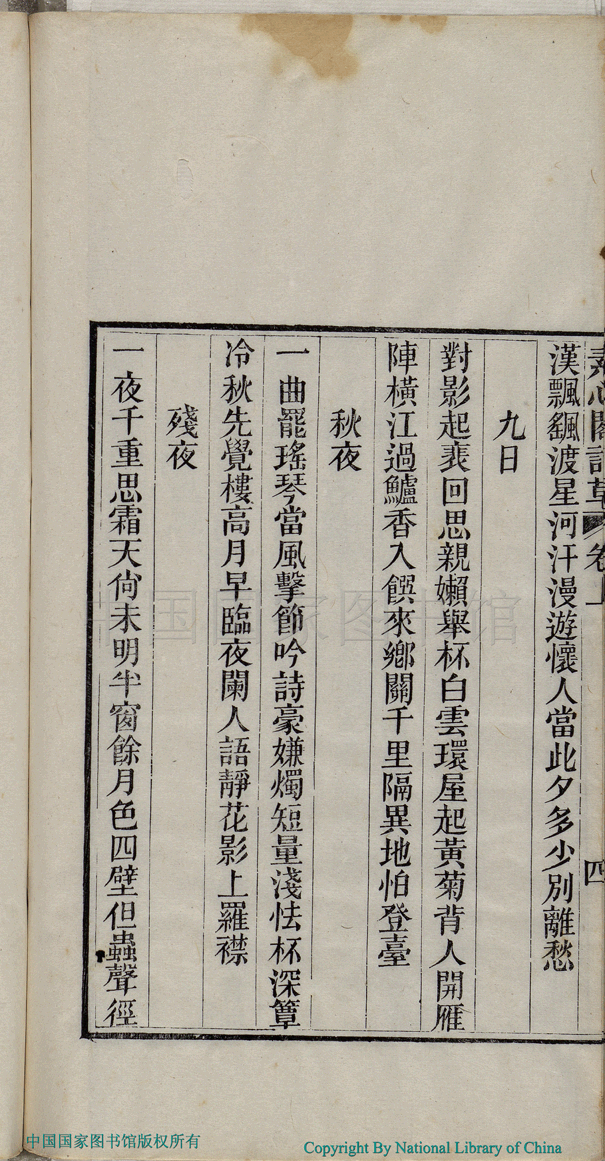 素心閣詩草 卷上 四
漢飄颻渡星河汗漫遊懷人當此夕多少別離愁
九日
對影起裵回思親嬾舉杯白雲環屋起黃菊背人開雁
陣橫江過鱸香入饌來鄉關千里隔異地怕登臺
秋夜
一曲罷瑤琴當風擊節吟詩豪嫌燭短量淺怯杯深簟
冷秋先覺樓高月早臨夜闌人語靜花影上羅襟
殘夜
一夜千重思霜天尙未明半窗餘月色四壁但蟲聲徑
中国国家图书馆
中国国家图书馆版权所有
Copyright By National Library of China